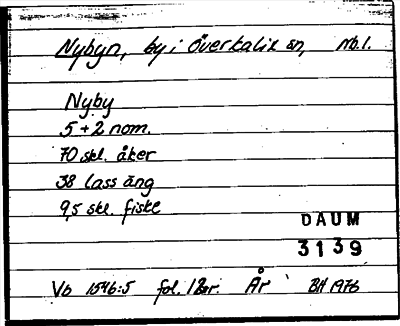 Nybyn, by i Överkalix sn, Nb.l.
Nyby
5+2 nom.
70 skl. åker
38 lass äng
9,5 skl. fiske
DAUM
3139
Vb 1546:5 fol. 12or. År BH 1976